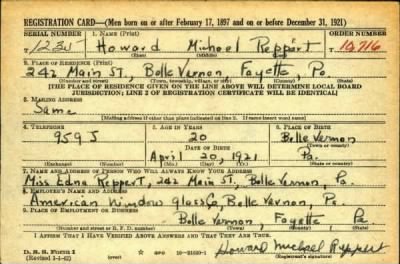 REGISTRATION CARD—(Men born on or after February 17, 1897 and on or before December 31, 1921)
SERIAL NUMBER 1. NAME (Print) ORDER NUMBER
Howard Michael Reppert 10716
(First) (Middle) (Last)
2. PLACE OF RESIDENCE (Print)
242 Main St., Belle Vernon Fayette, Pa.
(Number and street) (Town, township, village, or city) (County) (State)
[THE PLACE OF RESIDENCE GIVEN ON THE LINE ABOVE WILL DETERMINE LOCAL BOARD
JURISDICTION; LINE 2 OF REGISTRATION CERTIFICATE WILL BE IDENTICAL]
3. MAILING ADDRESS
Same
[Mailing address if other than place indicated on line 2. If same insert word same]
4. TELEPHONE 5. AGE IN YEARS 6. PLACE OF BIRTH
959J 20 Belle Vernon
DATE OF BIRTH (Town or county)
April 20, 1921 Pa.
(Exchange) (Number) (Mo.) (Day) (Yr.) (State or country)
7. NAME AND ADDRESS OF PERSON WHO WILL ALWAYS KNOW YOUR ADDRESS
Miss Edna Reppert, 242 Main St., Belle Vernon, Pa.
8. EMPLOYER'S NAME AND ADDRESS
American Window Glass Co, Belle Vernon, Pa.
9. PLACE OF EMPLOYMENT OR BUSINESS
Belle Vernon, Fayette, Pa.
(Number and street or R. F. D. number) (Town) (County) (State)
I AFFIRM THAT I HAVE VERIFIED ABOVE ANSWERS AND THAT THEY ARE TRUE.
D. S. S. FORM 1 (over) GPO
(Revised 1-1-42) Howard Michael Reppert
(Registrant's signature)